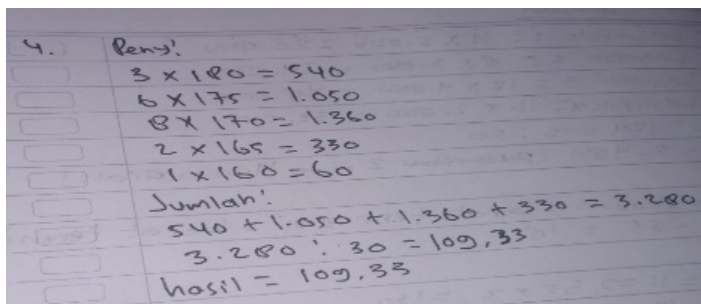 4. Peny:
3 x 180 = 540
6 x 175 = 1.050
8 x 170 = 1.360
2 x 165 = 330
1 x 160 = 60
Jumlah:
540 + 1.050 + 1.360 + 330 = 3.280
3.280 : 30 = 109,33
hasil = 109,33